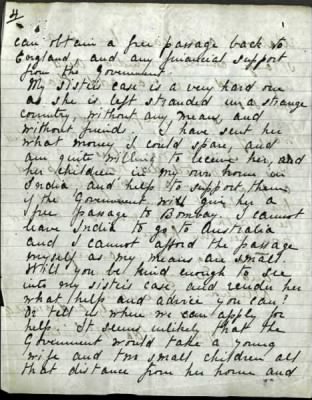 4
can obtain a free passage back to
England, and any financial support
from the Government.
My sisters case is a very hard one
as she is left stranded in a strange
country, without any means, and
without friends. I have sent her
what money I could spare, and
am quite willing to receive her, and
her children in my own home in
India and help to support them
if the Government will give her a
free passage to Bombay. I cannot
leave India to go to Australia
and I cannot afford the passage
myself as my means are small.
Will you be kind enough to see
into my sisters case, and render her
what help and advice you can?
Or tell us where we can apply for
help. It seems unlikely that the
Government would take a young
wife and two small children all
that distance from her home and